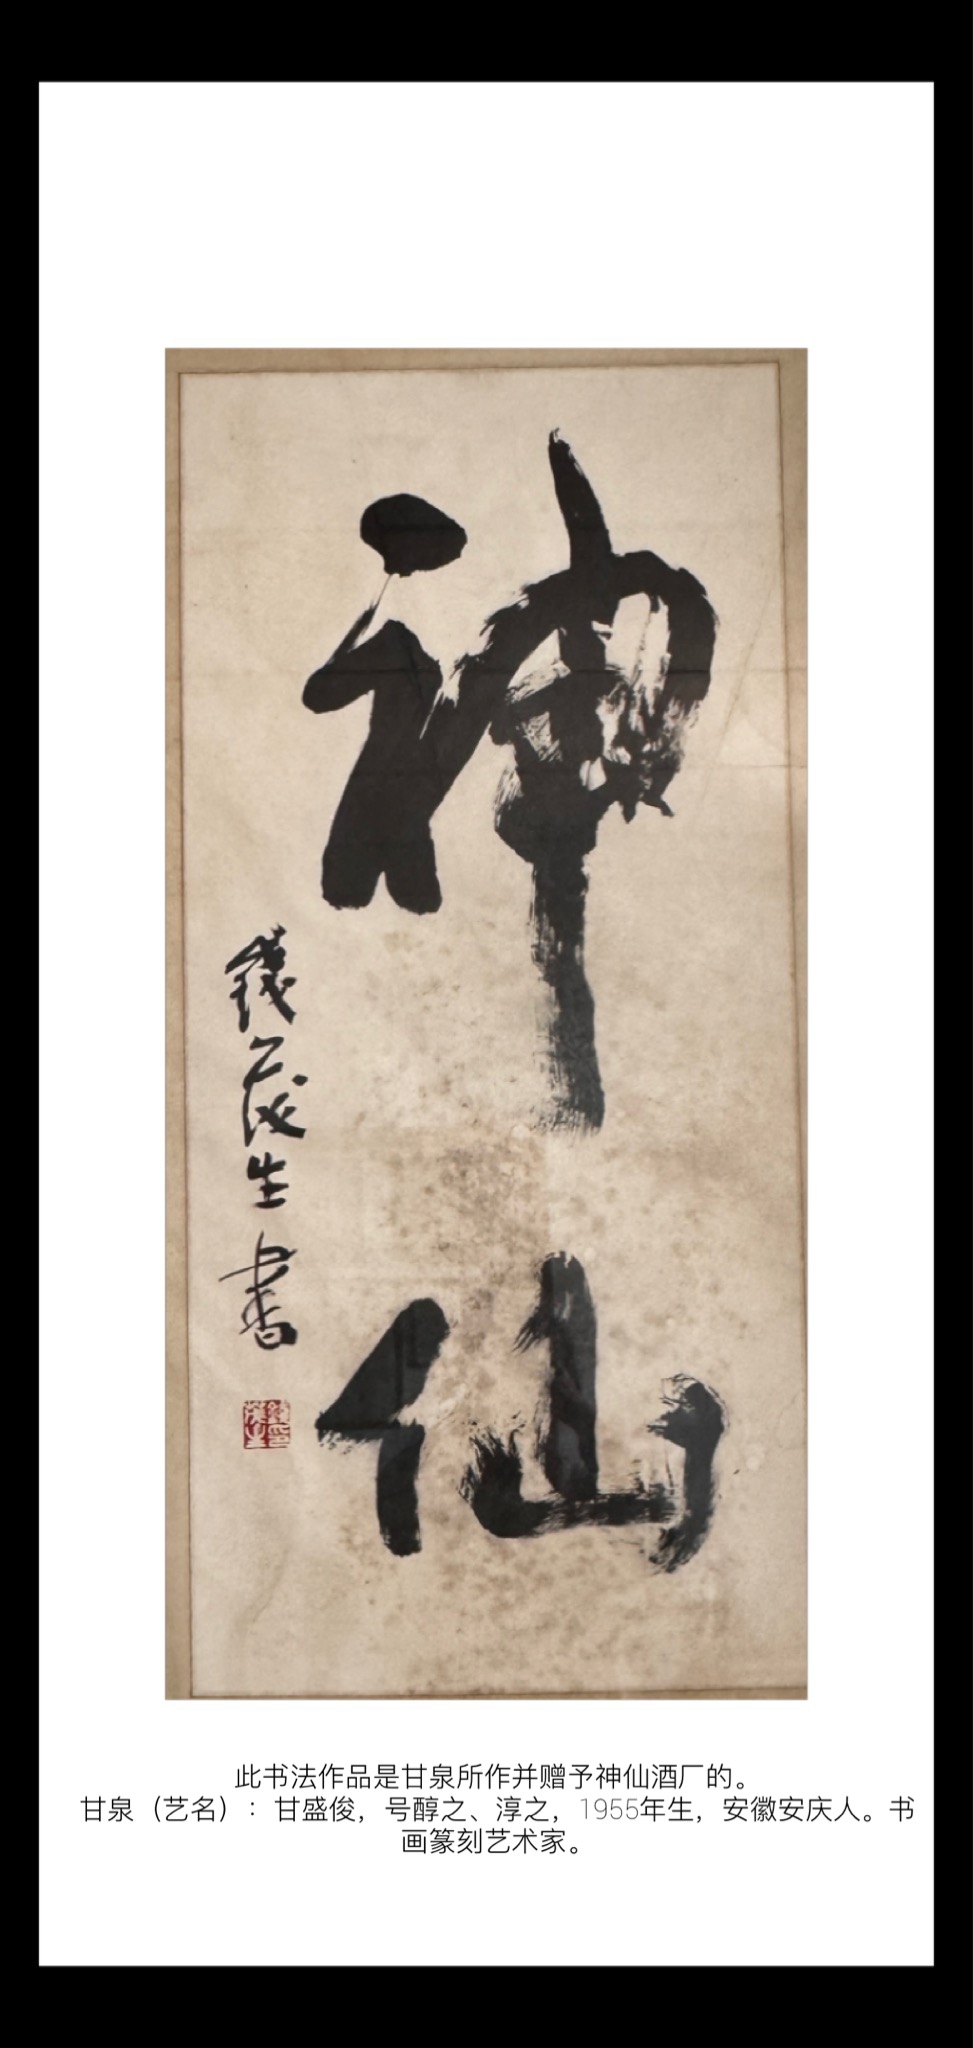 神仙
錢茂生書
此书法作品是甘泉所作并赠予神仙酒厂的。
甘泉（艺名）：甘盛俊，号醇之、淳之，1955年生，安徽安庆人。书
画篆刻艺术家。